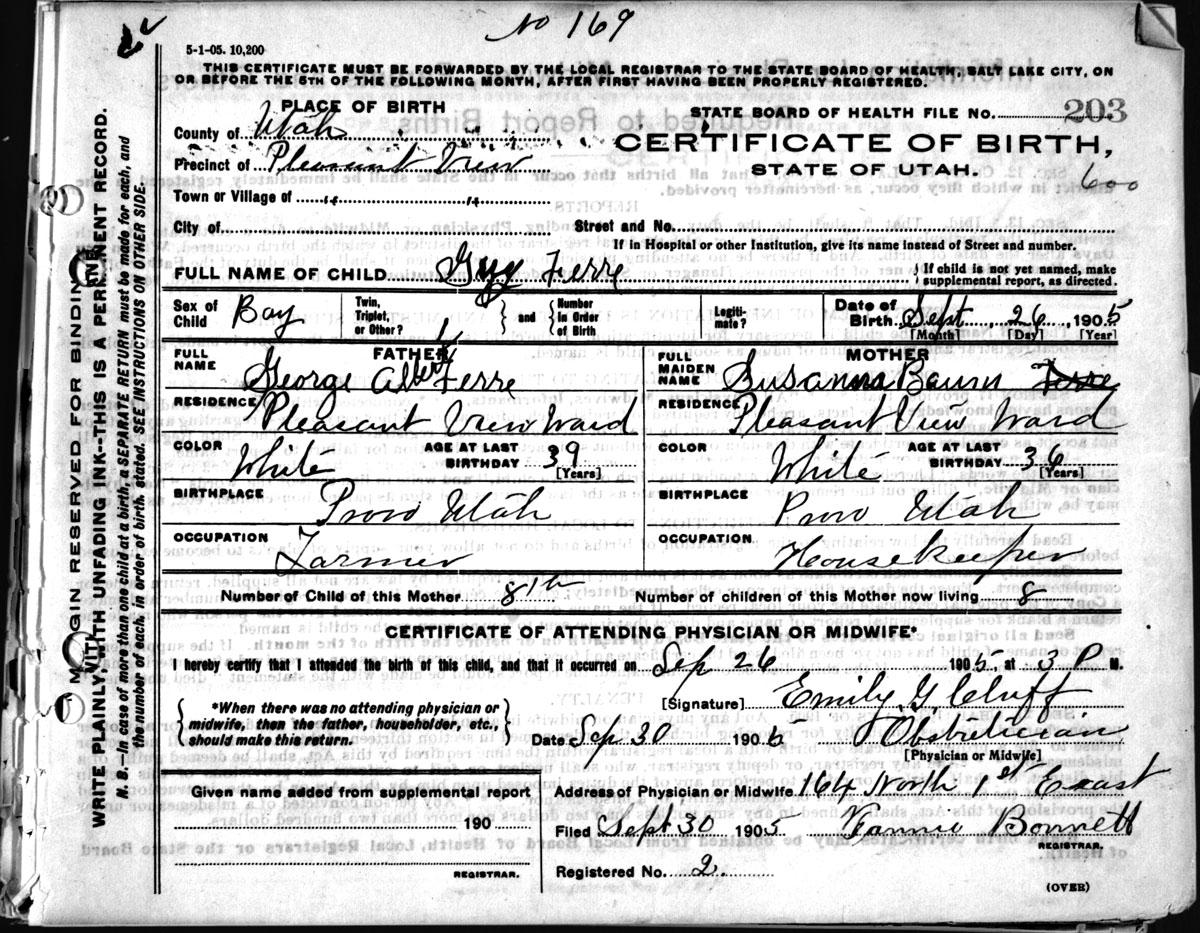 No 169
5-1-05. 10,200
THIS CERTIFICATE MUST BE FORWARDED BY THE LOCAL REGISTRAR TO THE STATE BOARD OF HEALTH, SALT LAKE CITY, ON
OR BEFORE THE 5TH OF THE FOLLOWING MONTH, AFTER FIRST HAVING BEEN PROPERLY REGISTERED.
PLACE OF BIRTH
STATE BOARD OF HEALTH FILE NO. 203
County of Utah
CERTIFICATE OF BIRTH,
Precinct of Pleasant View
STATE OF UTAH.
600
Town or Village of " "
City of Street and No.
If in Hospital or other Institution, give its name instead of Street and number.
FULL NAME OF CHILD Guy Ferre { If child is not yet named, make supplemental report, as directed.
Sex of Child Boy Twin, Triplet, or Other? { and } Number in Order of Birth Legitimate? Date of Birth. Sept 26, 1905
[Month] [Day] [Year]
FATHER
FULL NAME George Albert Ferre
RESIDENCE Pleasant View Ward
COLOR White AGE AT LAST BIRTHDAY 39 [Years]
BIRTHPLACE Provo Utah
OCCUPATION Farmer
MOTHER
FULL MAIDEN NAME Susanna Baum Ferre
RESIDENCE Pleasant View Ward
COLOR White AGE AT LAST BIRTHDAY 36 [Years]
BIRTHPLACE Provo Utah
OCCUPATION Housekeeper
Number of Child of this Mother 8th Number of children of this Mother now living 8
CERTIFICATE OF ATTENDING PHYSICIAN OR MIDWIFE*
I hereby certify that I attended the birth of this child, and that it occurred on Sep 26 1905, at 3 P M.
{ *When there was no attending physician or midwife, then the father, householder, etc., should make this return. }
[Signature] Emily G. Cluff
Date Sep 30 1905 Obstetrician
[Physician or Midwife]
Given name added from supplemental report
190
REGISTRAR.
Address of Physician or Midwife 164 North 1st East
Filed Sept 30 1905 Fannie Bonnett
REGISTRAR.
Registered No. 2.
(OVER)
MARGIN RESERVED FOR BINDING
WRITE PLAINLY WITH UNFADING INK--THIS IS A PERMANENT RECORD.
N. B.--In case of more than one child at a birth, a SEPARATE RETURN must be made for each, and
the number of each, in order of birth, stated. SEE INSTRUCTIONS ON OTHER SIDE.